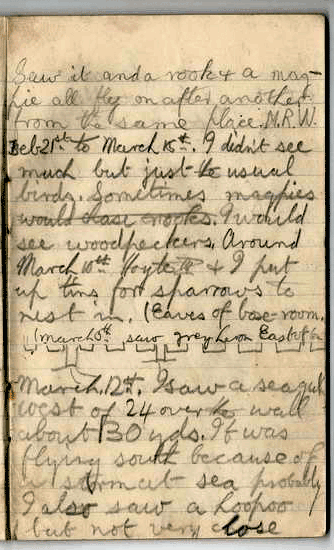 Saw it and a rook & a mag-
pie all fly on after another
from the same place. N.R.W.
Feb 21st to March 15th. I didn't see
much but just to usual
birds. Sometimes magpies
would chase crooks. I would
see woodpeckers. Around
March 10th & I put
up tins for sparrows to
nest in. (Eaves of box-room.
(March 5th saw grey heron East of
March. 12th. I saw a seagull
west of 24 over to wall
about 130 yds. It was
flying south because of
a storm at sea probably
I also saw a hoopoo
but not very close